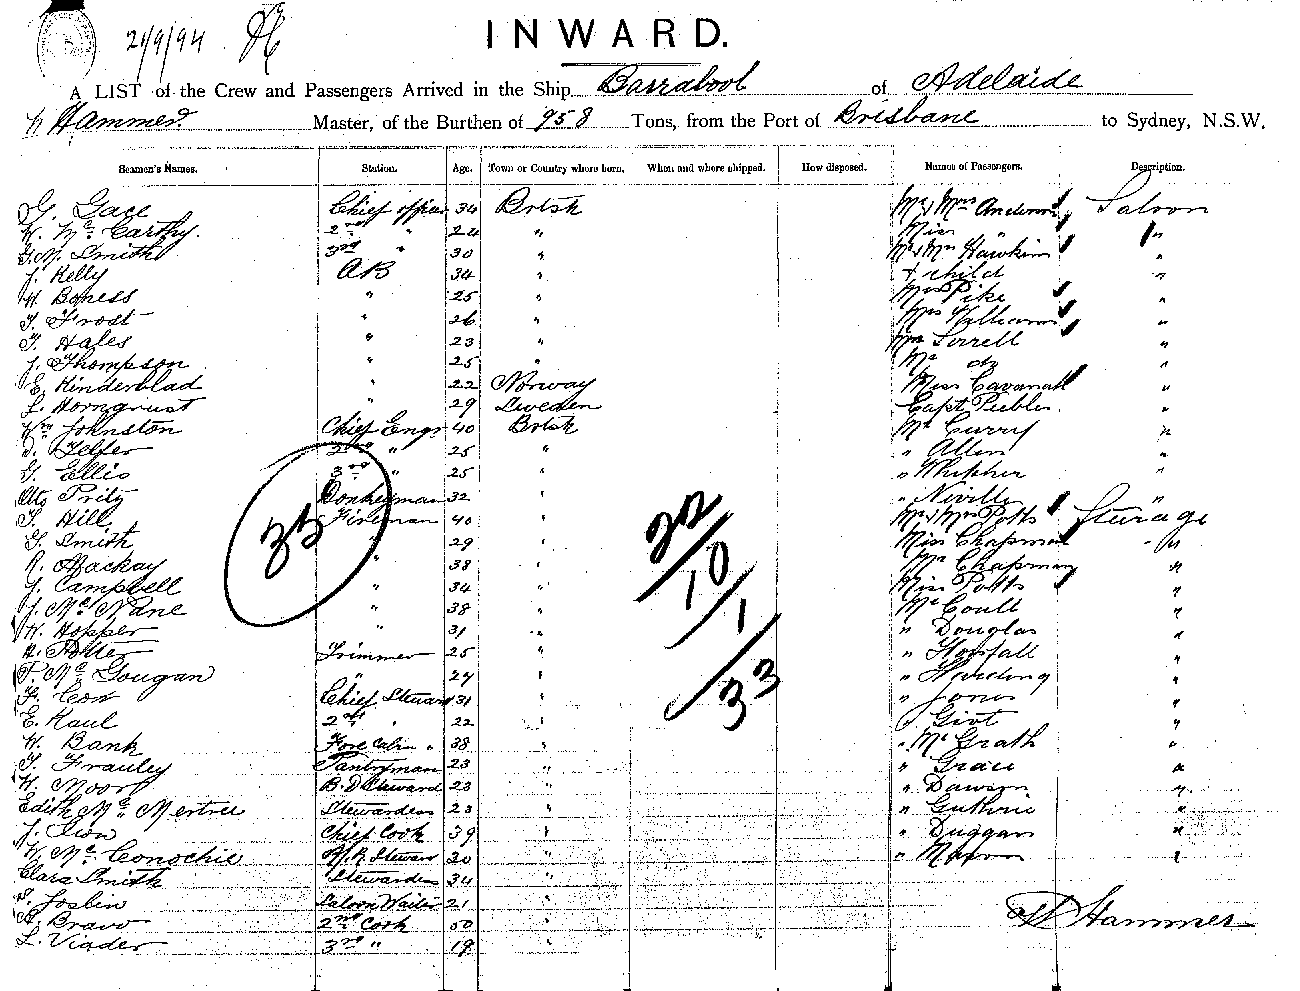 21/9/94
INWARD.
A LIST of the Crew and Passengers Arrived in the Ship Barrabool of Adelaide
Hammer Master, of the Burthen of 958 Tons, from the Port of Brisbane to Sydney, N.S.W.
Seamen's Names. Station. Age. Town or Country where born. When and where shipped. How disposed. Names of Passengers. Description.
G. Gace Chief officer 34 Brtsh Mr & Mrs Anderson Saloon
W. McCarthy. 2nd " 24 " Miss " "
G. M. Smith 3rd " 30 " Mr & Mrs Hawkins "
J. Kelly AB 34 " & child "
H. Boness " 25 " Mrs Pike "
T. Frost " 26 " Mrs Williams "
T. Hales " 23 " Mrs Sorrell "
J. Thompson " 25 " Mr do "
E. Kinderblad " 22 Norway Miss Cavanah "
L. Hornqvist " 29 Sweden Capt Peebles "
Wm Johnston Chief Engr 40 Brtsh Mr Curry "
D. Telfer 2nd " 25 " " Allen "
G. Ellis 3rd " 25 " " "
Otto Donkeyman 32 " " Neville "
T. Hill Fireman 40 " Mr & Mrs Potts Sturage
G. Smith " 29 " Miss Chapman " "
R. Mackay " 38 " Mr Chapman "
J. Campbell " 34 " Miss Potts "
J. McNane " 38 " Mr Coult "
W. Hopper " 31 " " Douglas "
H. Potter Trimmer 25 " " Horsfall "
P. McGougan " 27 " " Harding "
F. Coon Chief Steward 31 " " Jones "
E. Kaul 2nd " 22 " " "
W. Bank Fore Cabin " 38 " " McGrath "
T. Frauley Pantryman 23 " " Grace "
W. Moor B. D Steward 23 " " Dawson "
Edith Mc Stewardess 23 " " Guthrie "
J. Chief Cook 39 " " Duggan "
W. McConochie M. R. Steward 20 " " "
Clara Smith Stewardess 34 "
S. Saloon Waiter 21 "
A. Bravo 2nd Cook 50 "
L. Viader 3rd " 19 "
33
22
10
1
33
Hammer